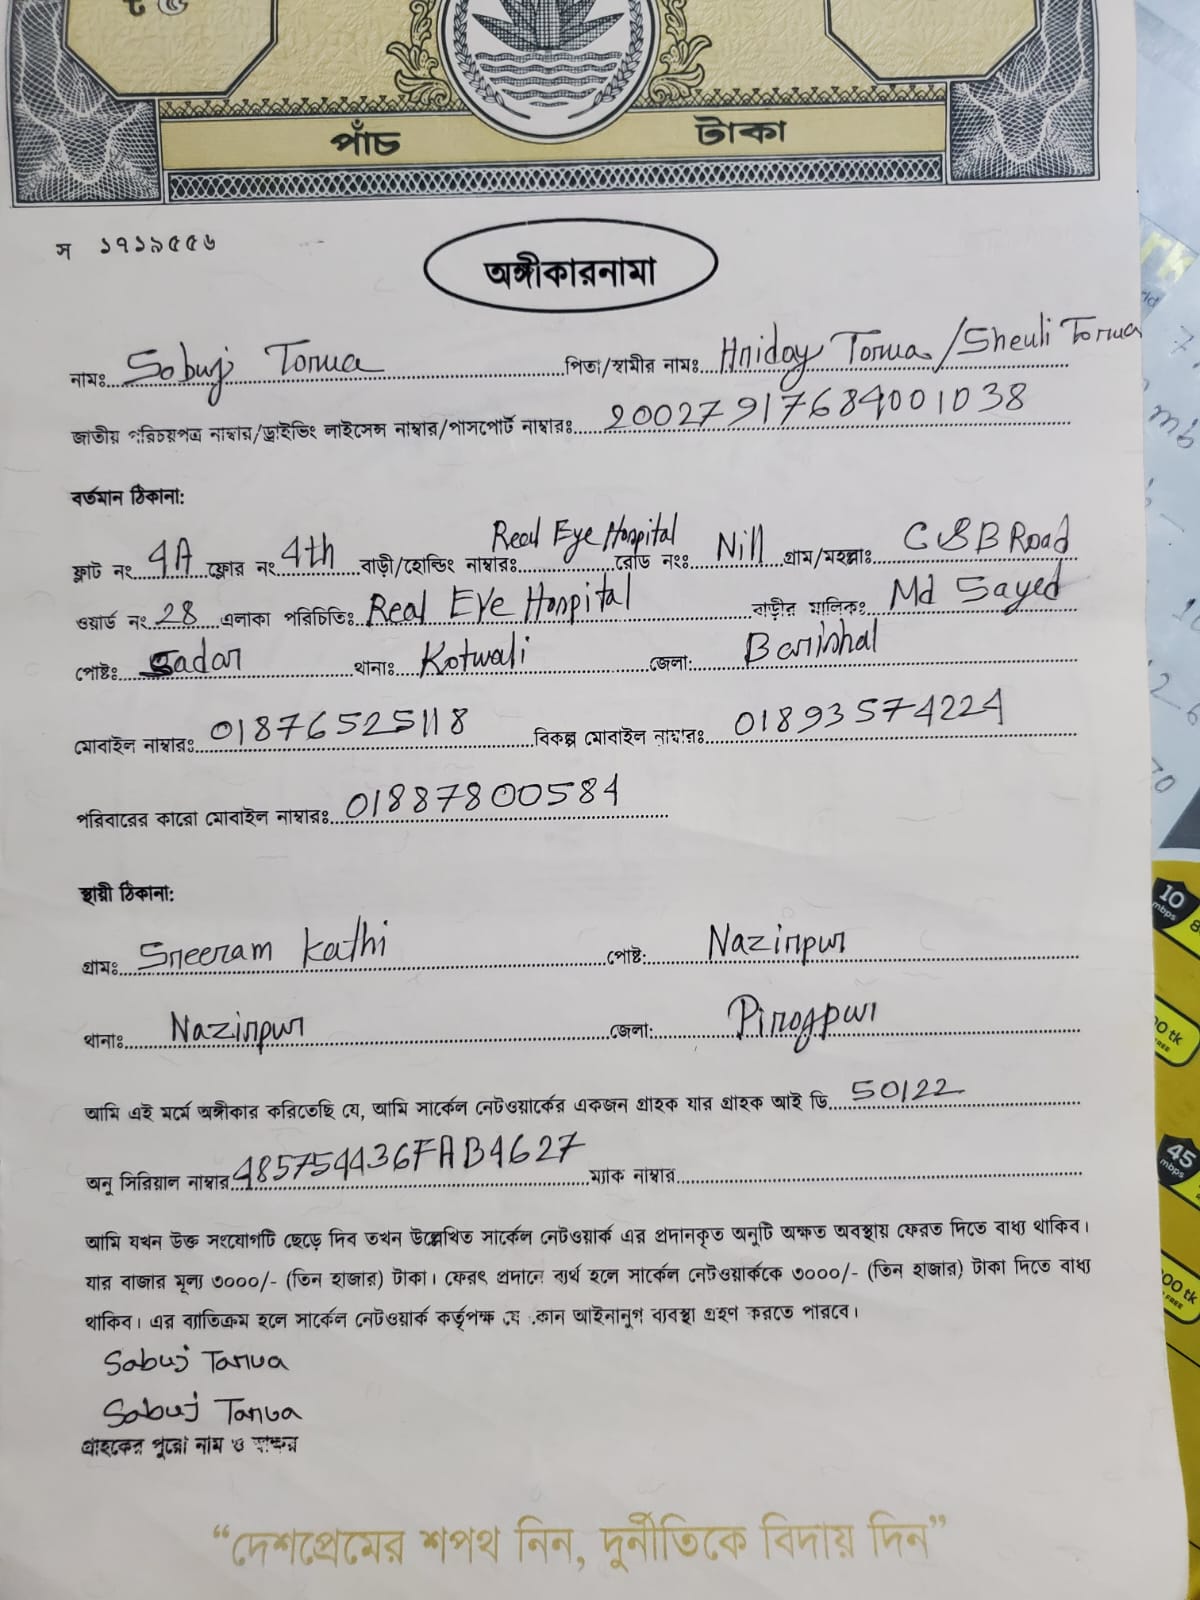 পাঁচ টাকা
স ১৭১৯৫৫৬
অঙ্গীকারনামা
নামঃ Sobuj Torua পিতা/স্বামীর নামঃ Hriday Torua/Sheuli Torua
জাতীয় পরিচয়পত্র নাম্বার/ড্রাইভিং লাইসেন্স নাম্বার/পাসপোর্ট নাম্বারঃ 20027917684001038
বর্তমান ঠিকানা:
ফ্লাট নং 4A ফ্লোর নং 4th বাড়ী/হোল্ডিং নাম্বারঃ Real Eye Hospital রোড নংঃ Nill গ্রাম/মহল্লাঃ C&B Road
ওয়ার্ড নং 28 এলাকা পরিচিতিঃ Real Eye Hospital বাড়ীর মালিকঃ Md Sayed
পোষ্টঃ Sadar থানাঃ Kotwali জেলা: Barishal
মোবাইল নাম্বারঃ 01876525118 বিকল্প মোবাইল নাম্বারঃ 01893574224
পরিবারের কারো মোবাইল নাম্বারঃ 01887800584
স্থায়ী ঠিকানা:
গ্রামঃ Sreeram kathi পোষ্ট: Nazirpur
থানাঃ Nazirpur জেলা: Pirojpur
আমি এই মর্মে অঙ্গীকার করিতেছি যে, আমি সার্কেল নেটওয়ার্কের একজন গ্রাহক যার গ্রাহক আই ডি 50122
অনু সিরিয়াল নাম্বার 485754436FAB4627 ম্যাক নাম্বার
আমি যখন উক্ত সংযোগটি ছেড়ে দিব তখন উল্লেখিত সার্কেল নেটওয়ার্ক এর প্রদানকৃত অনুটি অক্ষত অবস্থায় ফেরত দিতে বাধ্য থাকিব।
যার বাজার মূল্য ৩০০০/- (তিন হাজার) টাকা। ফেরৎ প্রদানে ব্যর্থ হলে সার্কেল নেটওয়ার্ককে ৩০০০/- (তিন হাজার) টাকা দিতে বাধ্য
থাকিব। এর ব্যাতিক্রম হলে সার্কেল নেটওয়ার্ক কর্তৃপক্ষ যে কোন আইনানুগ ব্যবস্থা গ্রহণ করতে পারবে।
Sabuj Tarua
Sabuj Tarua
গ্রাহকের পুরো নাম ও স্বাক্ষর
“দেশপ্রেমের শপথ নিন, দুর্নীতিকে বিদায় দিন”
10 mbps
45 mbps